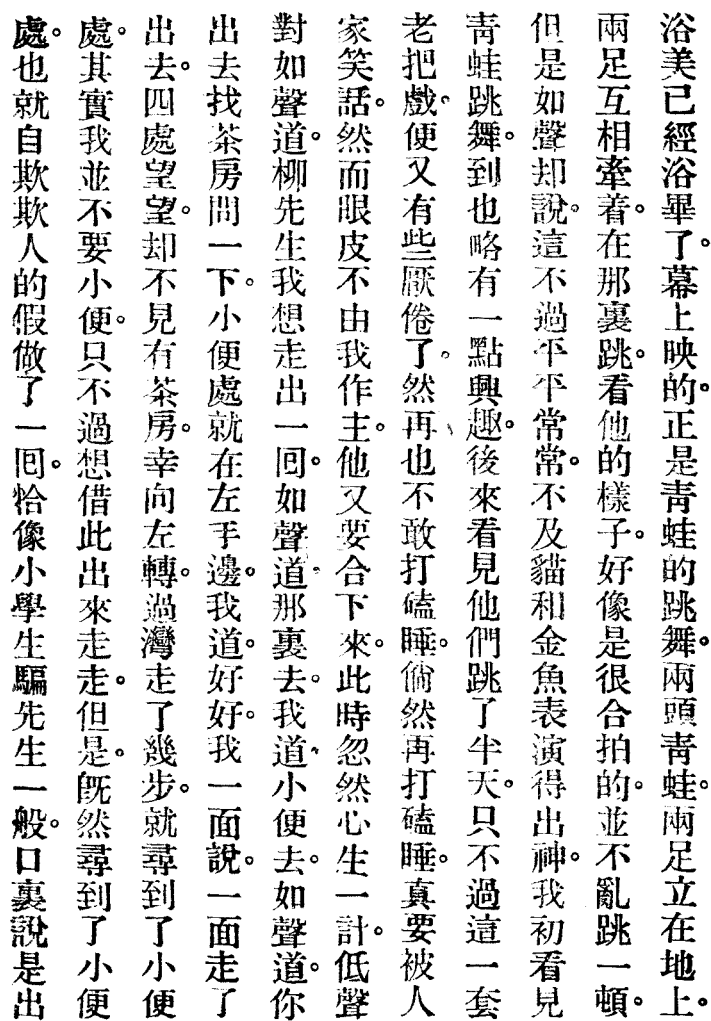 浴美已經浴畢了。幕上映的。正是青蛙的跳舞。兩頭青蛙。兩足立在地上。
兩足互相牽着。在那裏跳。看他的樣子。好像是很合拍的。並不亂跳一頓。
但是如聲却說。這不過平平常常。不及貓和金魚表演得出神。我初看見
青蛙跳舞。到也略有一點興趣。後來看見他們跳了半天。只不過這一套
老把戲。便又有些厭倦了。然再也不敢打磕睡。倘然再打磕睡。真要被人
家笑話。然而眼皮不由我作主。他又要合下來。此時忽然心生一計。低聲
對如聲道。柳先生我想走出一回。如聲道。那裏去。我道。小便去。如聲道。你
出去找茶房問一下。小便處就在左手邊。我道。好好。我一面說。一面走了
出去。四處望望。却不見有茶房。幸向左轉。過灣走了幾步。就尋到了小便
處。其實我並不要小便。只不過想借此出來走走。但是。既然尋到了小便
處。也就自欺欺人的假做了一回。恰像小學生騙先生一般。口裏說是出